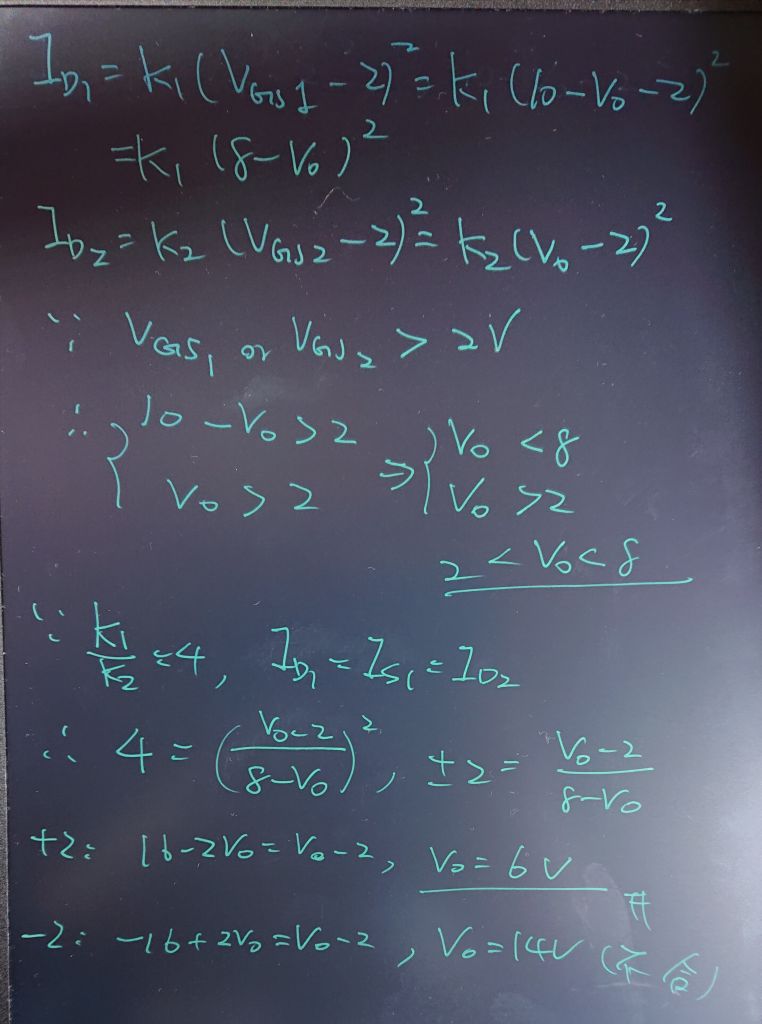 I_{D1} = k_1 (V_{GS1} - 2)^2 = k_1 (10 - V_o - 2)^2
= k_1 (8 - V_o)^2
I_{D2} = k_2 (V_{GS2} - 2)^2 = k_2 (V_o - 2)^2
∵ V_{GS1} or V_{GS2} > 2V
∴ { 10 - V_o > 2 ⇒ { V_o < 8
V_o > 2 V_o > 2
2 < V_o < 8
∵ k_1/k_2 = 4, I_{D1} = I_{S1} = I_{D2}
∴ 4 = ((V_o - 2)/(8 - V_o))^2, ±2 = (V_o - 2)/(8 - V_o)
+2: 16 - 2V_o = V_o - 2, V_o = 6V #
-2: -16 + 2V_o = V_o - 2, V_o = 14V (不合)